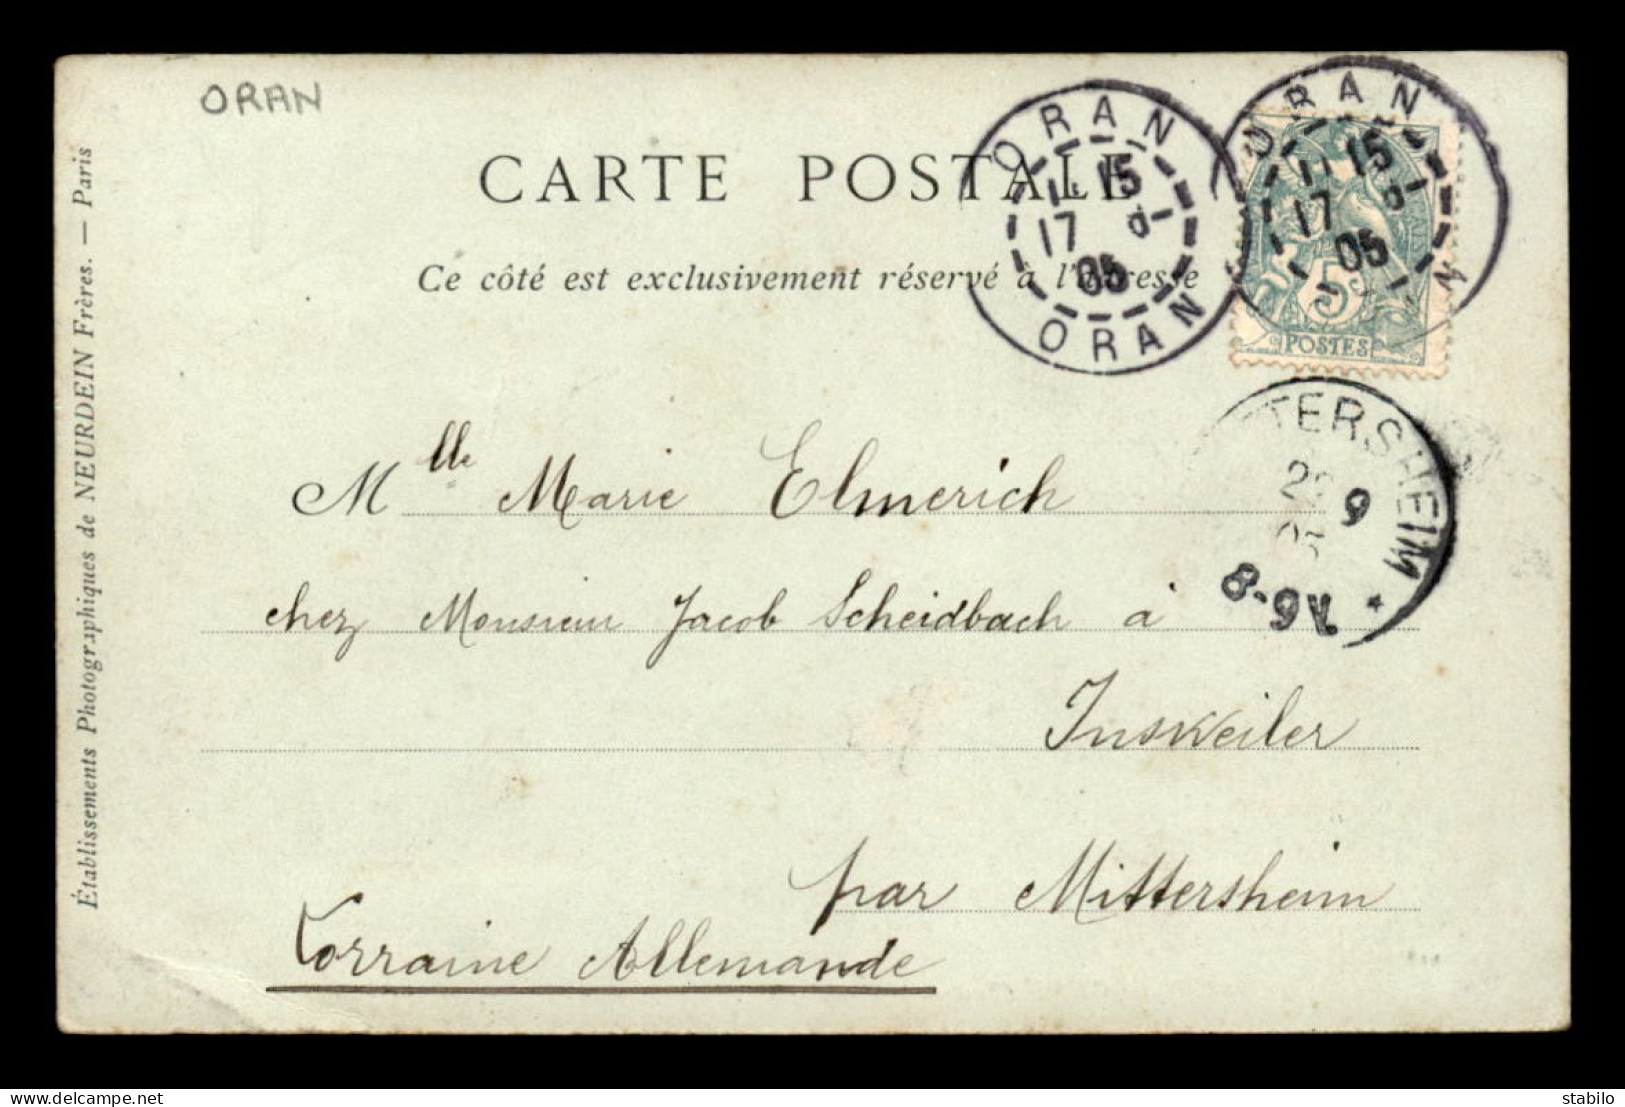 ORAN
CARTE POSTALE
Ce côté est exclusivement réservé à l'adresse
Établissements Photographiques de NEURDEIN Frères. — Paris
ORAN
15
17 9
05
ORAN
ORAN
15
17 9
05
5c
POSTES
TTERSHEIM *
22 9
05
8-9V.
Mlle Marie Elmerich
chez Monsieur Jacob Scheidbach à
Insweiler
par Mittersheim
Lorraine Allemande
www.delcampe.net
stabilo